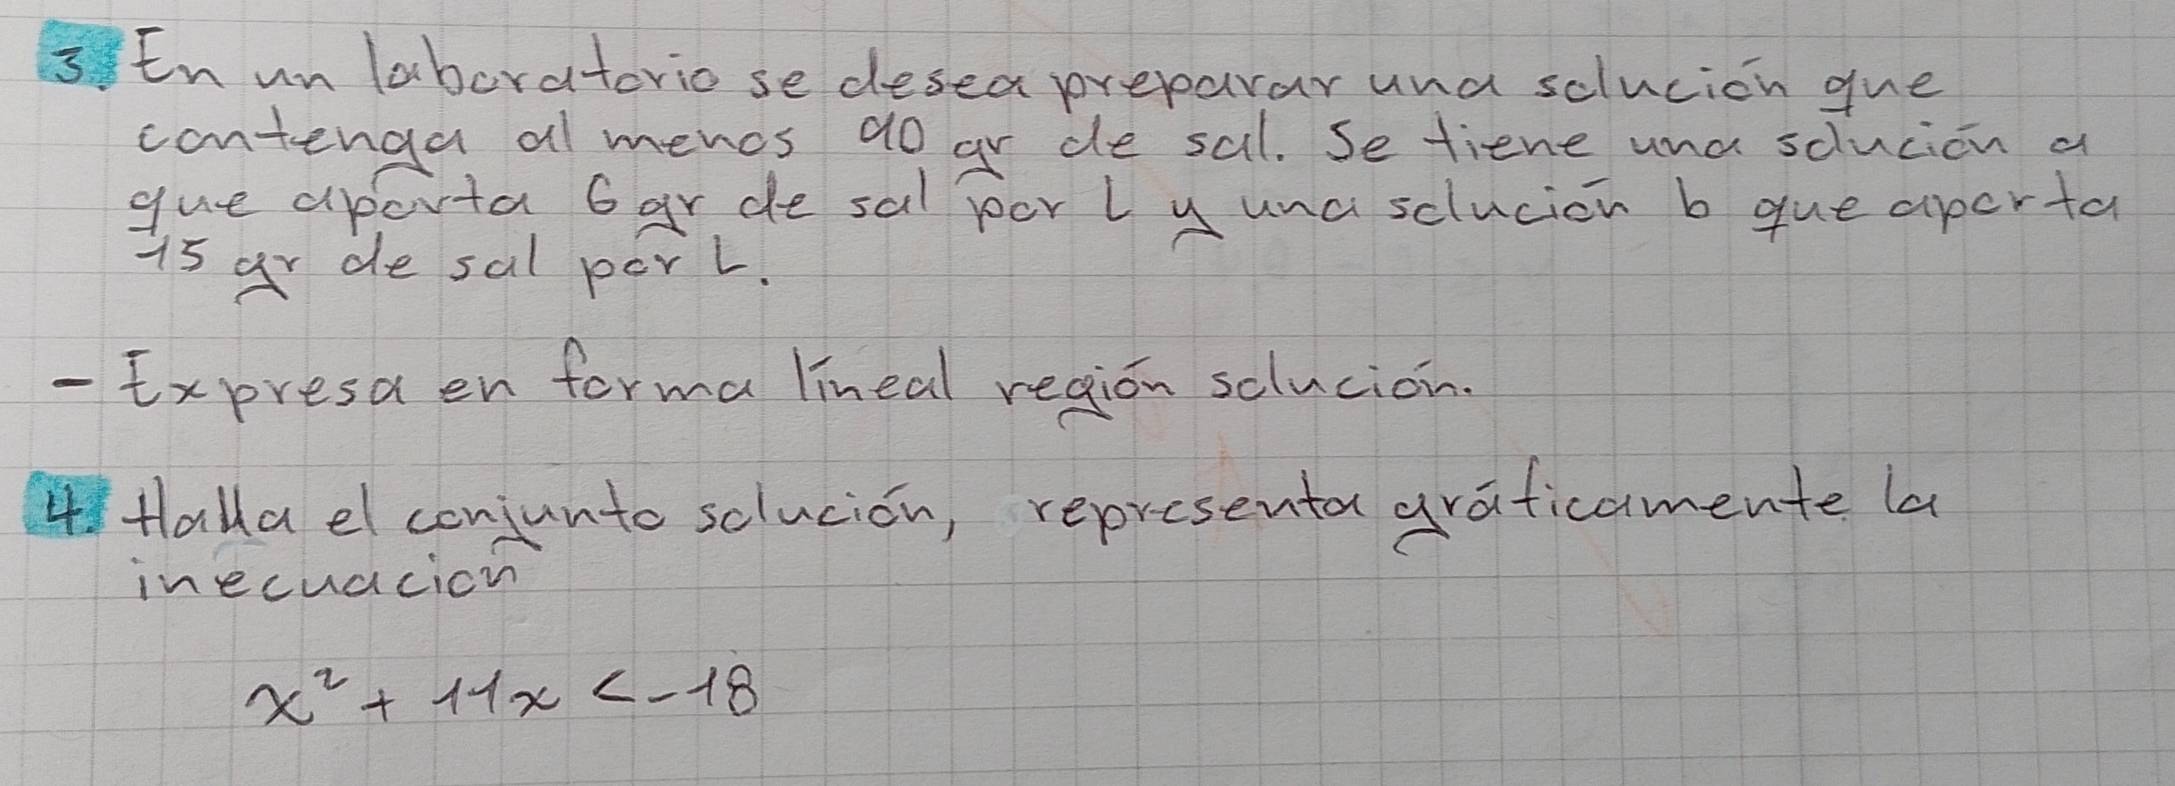 3. En un laboratorio se desea preparar una solución que
contenga al menos 90 gr de sal. Se tiene una solución a
que aporta 6 gr de sal por L y una solución b que aporta
15 gr de sal por L.
- Expresa en forma líneal región solución.
4. Halla el conjunto solución, representa gráficamente la
inecuación
x² + 11x < -18